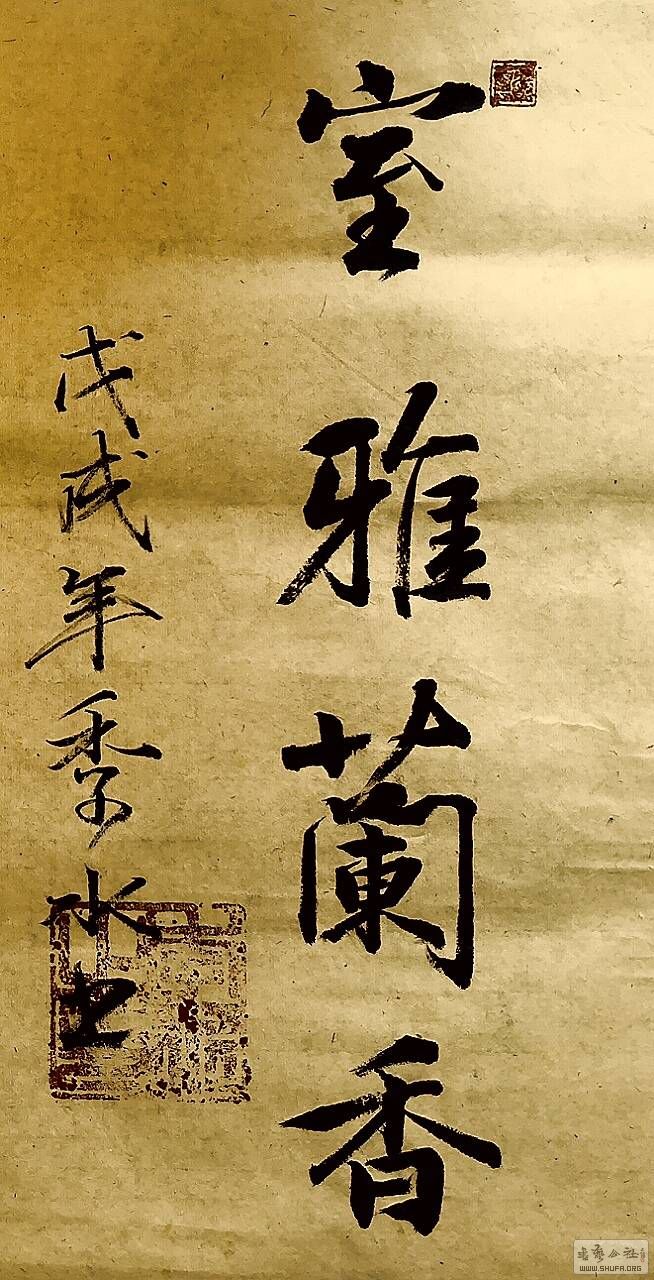 室雅蘭香
戊戌年季水书
WWW.SHUFA.ORG